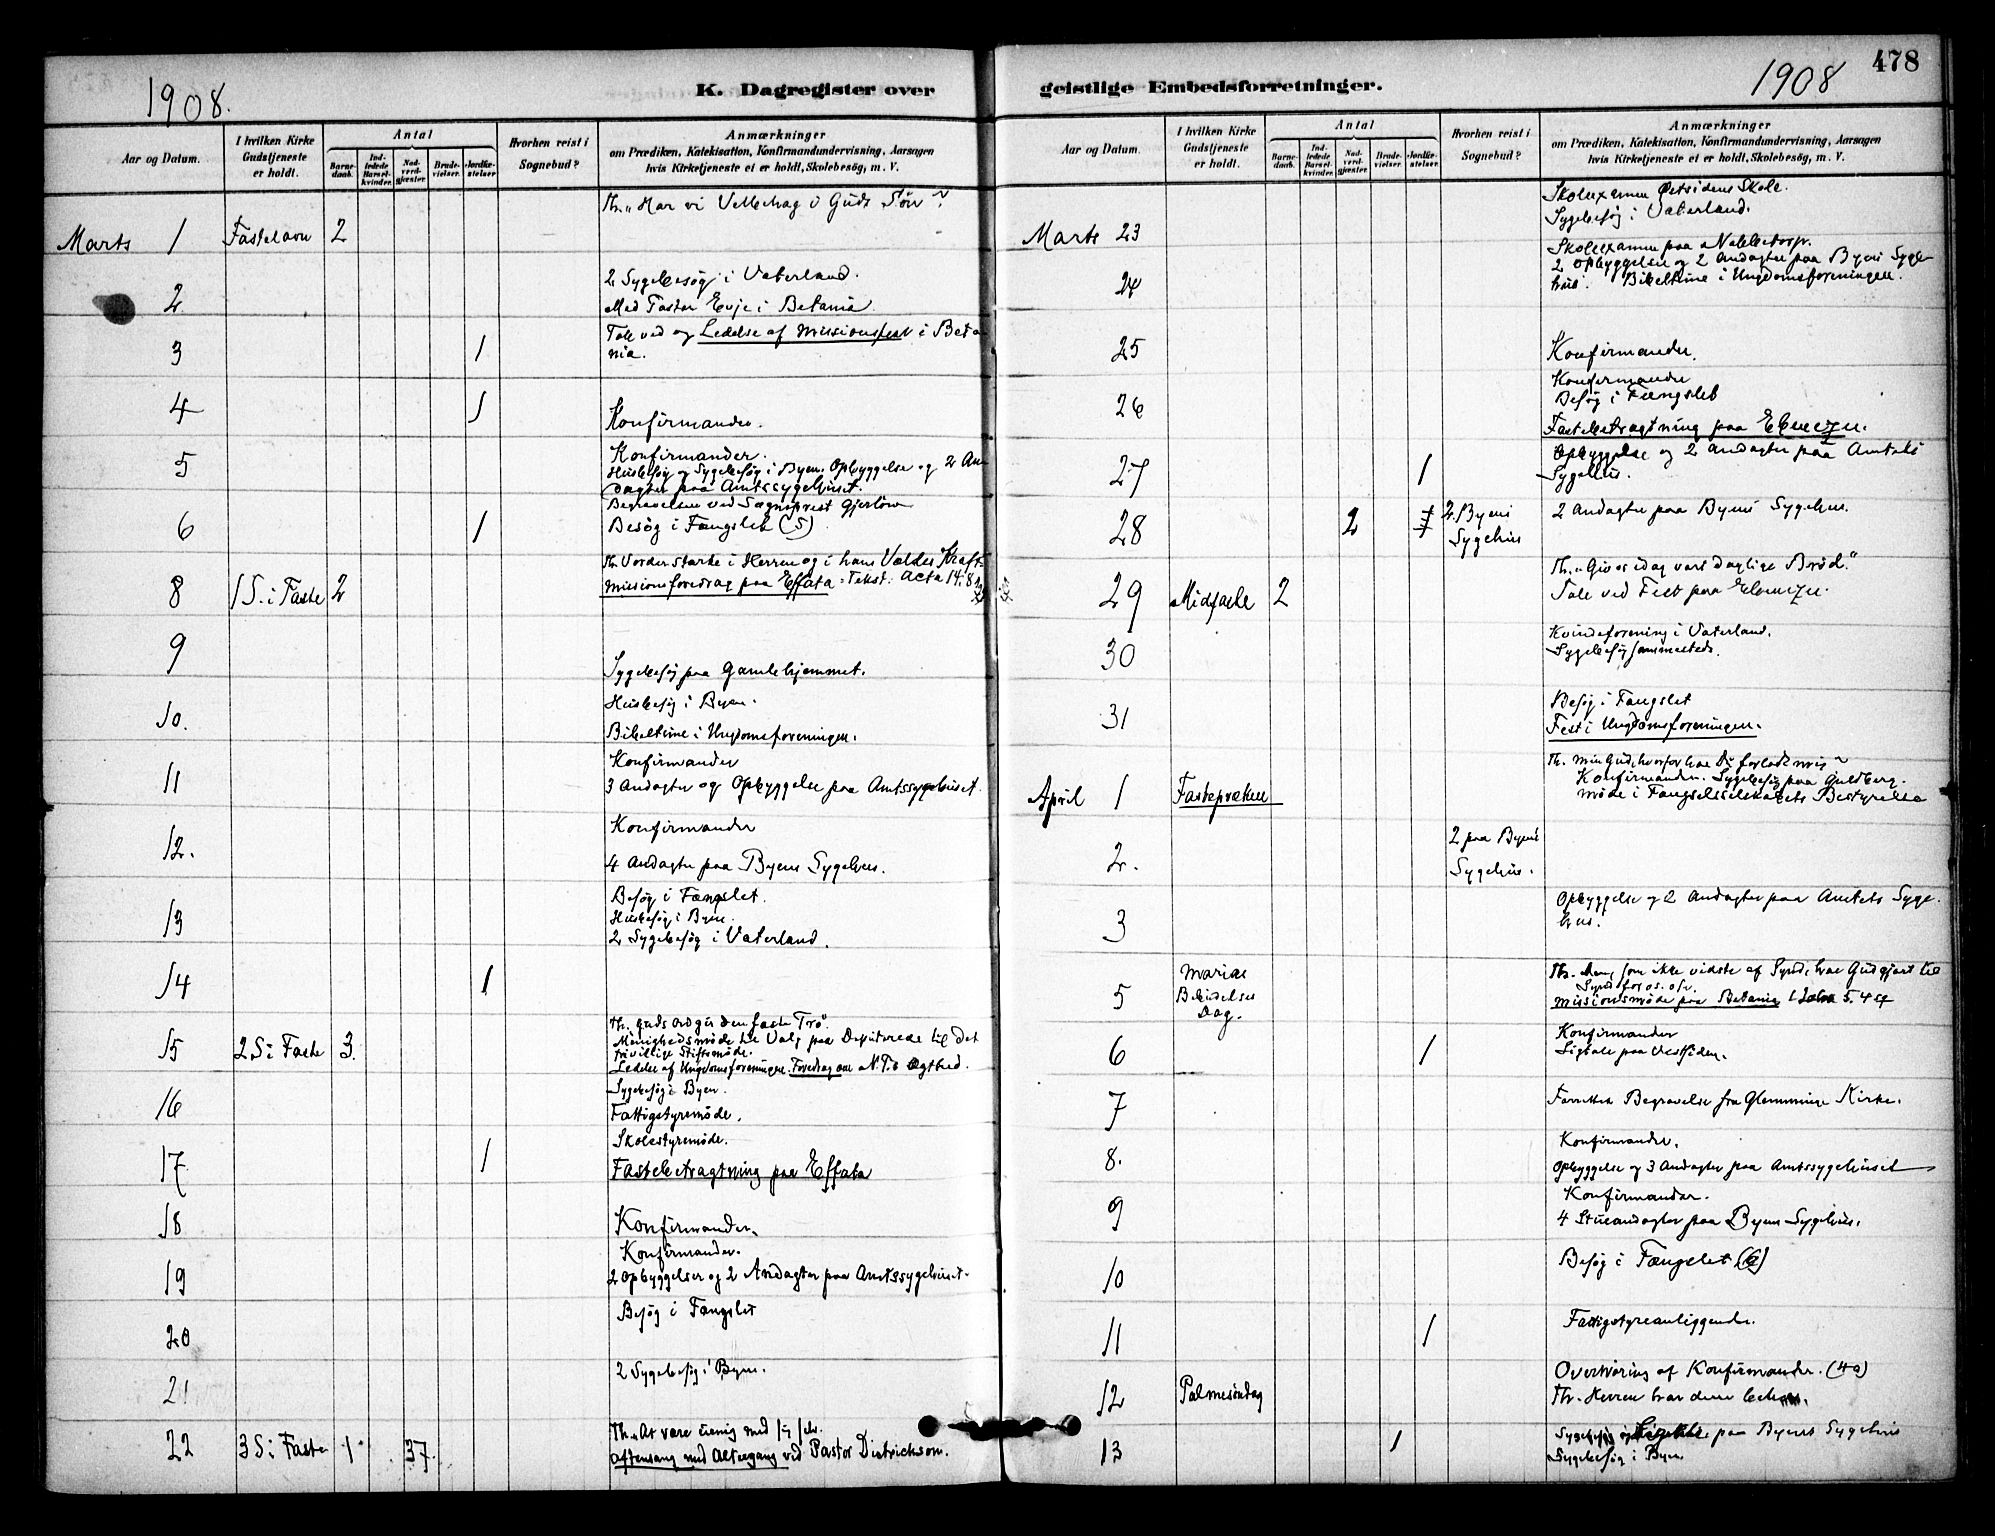 1908.
K. Dagregister over
Aar og Datum.
I hvilken Kirke Gudstjeneste er holdt.
Antal
Barne-daab.
Ind-ledede Barsel-kvinder.
Nad-verd-gjæster.
Brude-vielser.
Jordfæ-stelser
Hvorhen reist i Sognebud?
Anmærkninger
om Prædiken, Katekisation, Konfirmandundervisning, Aarsagen
hvis Kirketjeneste ei er holdt, Skolebesøg, m. V.
Th. „Har vi Velbehag i Guds Søn"?
Marts 1 Fastelavn 2
2 Sygebesøg i Vaterland.
2 Med Pastor Evje i Betania.
Tale ved og Ledelse af Missionsfest i Beta-
3 1 nia.
4 1 Konfirmander.
Konfirmander.
5 Husbesøg og Sygebesøg i Byen. Opbyggelse og 2 An-
dagter paa Amtssygehuset.
Begravelsen ved Sogneprest Gjerløw
6 1 Besøg i Fængslet (5)
Th. Vorder stærke i Herren og i hans Vældes Kraft
8 1 S. i Faste 2 Missionsforedrag paa Effata. Tekst: Acta 14.8
9 Sygebesøg paa Gamlehjemmet.
Husbesøg i Byen.
10. Bibeltime i Ungdomsforeningen.
Konfirmander
11 3 Andagter og Opbyggelse paa Amtssygehuset.
Konfirmander
12. 4 Andagter paa Byens Sygehus.
Besøg i Fængslet.
13 Husbesøg i Byen.
2 Sygebesøg i Vaterland.
14 1
Th. Guds Ord gir den faste Tro".
15 2 S i Faste 3. Menighedsmøde til Valg paa Deputerede til det
frivillige Stiftsmøde.
Ledelse af Ungdomsforeningen. Foredrag om N.T.s Ægthed.
Sygebesøg i Byen.
16 Fattigstyremøde.
Skolestyremøde.
17 1 Fastebetragtning paa Effata
18 Konfirmander.
Konfirmander.
19 2 Opbyggelser og 2 Andagter paa Amtssygehuset.
Besøg i Fængslet
20
2 Sygebesøg i Byen.
21
Th. „At være uenig med sig selv.
22 3 S i Faste 1 37. Aftensang med Altergang ved Pastor Dietrichson.
geistlige Embedsforretninger.
1908
478
Aar og Datum.
I hvilken Kirke Gudstjeneste er holdt.
Antal
Barne-daab.
Ind-ledede Barsel-kvinder.
Nad-verd-gjæster.
Brude-vielser.
Jordfæ-stelser
Hvorhen reist i Sognebud?
Anmærkninger
om Prædiken, Katekisation, Konfirmandundervisning, Aarsagen
hvis Kirketjeneste ei er holdt, Skolebesøg, m. V.
Skoleexamen Østsidens Skole.
Sygebesøg i Vaterland.
Marts 23
Skoleexamen paa Nabbetorp.
2 Opbyggelser og 2 Andagter paa Byens Syge-
24 hus. Bibeltime i Ungdomsforeningen.
25 Konfirmander.
Konfirmander
26 Besøg i Fængslet
Fastebetragtning paa Ebenezer.
Opbyggelse og 2 Andagter paa Amtets
27 1 Sygehus.
28 2 2 Byens Sygehus 2 Andagter paa Byens Sygehus.
Th. „Giv os idag vort daglige Brød."
29 Midfaste 2 Tale ved Fest paa Ebenezer.
Kvindeforening i Vaterland.
30 Sygebesøg sammesteds.
Besøg i Fængslet
31 Fest i Ungdomsforeningen.
Th. Min Gud, hvorfor har Du forladt mig"
Konfirmander. Sygebesøg paa Guldberg.
April 1 Fastepræken Møde i Fængselsselskabets Bestyrelse
2 paa Byens
2. Sygehus.
Opbyggelse og 2 Andagter paa Amtets Syge-
3 hus.
Marias Th. Ham, som ikke vidste af Synd, har Gud gjort til
5 Bebudelses Synd for os. o.s.v.
Dag. Missionsmøde paa Betania 1 Joh 5. 4
Konfirmander
6 1 Ligtale paa Vestsiden.
7 Forrettede Begravelse fra Glemminge Kirke.
Konfirmander.
8. Opbyggelse og 3 Andagter paa Amtssygehuset
Konfirmander.
9 4 Stueandagter paa Byens Sygehus.
Besøg i Fængslet (6)
10
11 1 Fattigstyreanliggender.
Overhøring af Konfirmander. (40)
12 Palmesøndag Th. Herren har dem behov.
Sygebesøg paa Byens Sygehus
13 1 Sygebesøg i Byen